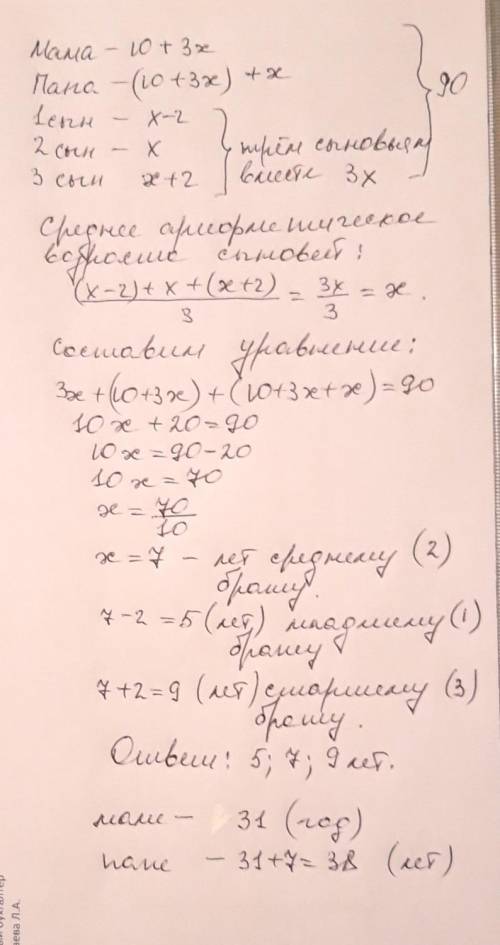 Мама – 10 + 3x
Папа – (10 + 3x) + x
90
1 сын – x-2
2 сын – x
3 сын x+2
трём сыновьям
вместе 3x
Среднее арифметическое
возраста сыновей:
(x-2) + x + (x+2) / 3 = 3x / 3 = x.
Составим уравнение:
3x + (10+3x) + (10+3x+x) = 90
10x + 20 = 90
10x = 90-20
10x = 70
x = 70 / 10
x = 7 – лет среднему (2)
брату.
7-2 = 5 (лет) младшему (1)
брату
7+2 = 9 (лет) старшему (3)
брату.
Ответ: 5; 7; 9 лет.
маме – 31 (год)
папе – 31+7 = 38 (лет)
бухгалтер
ева Л.А.